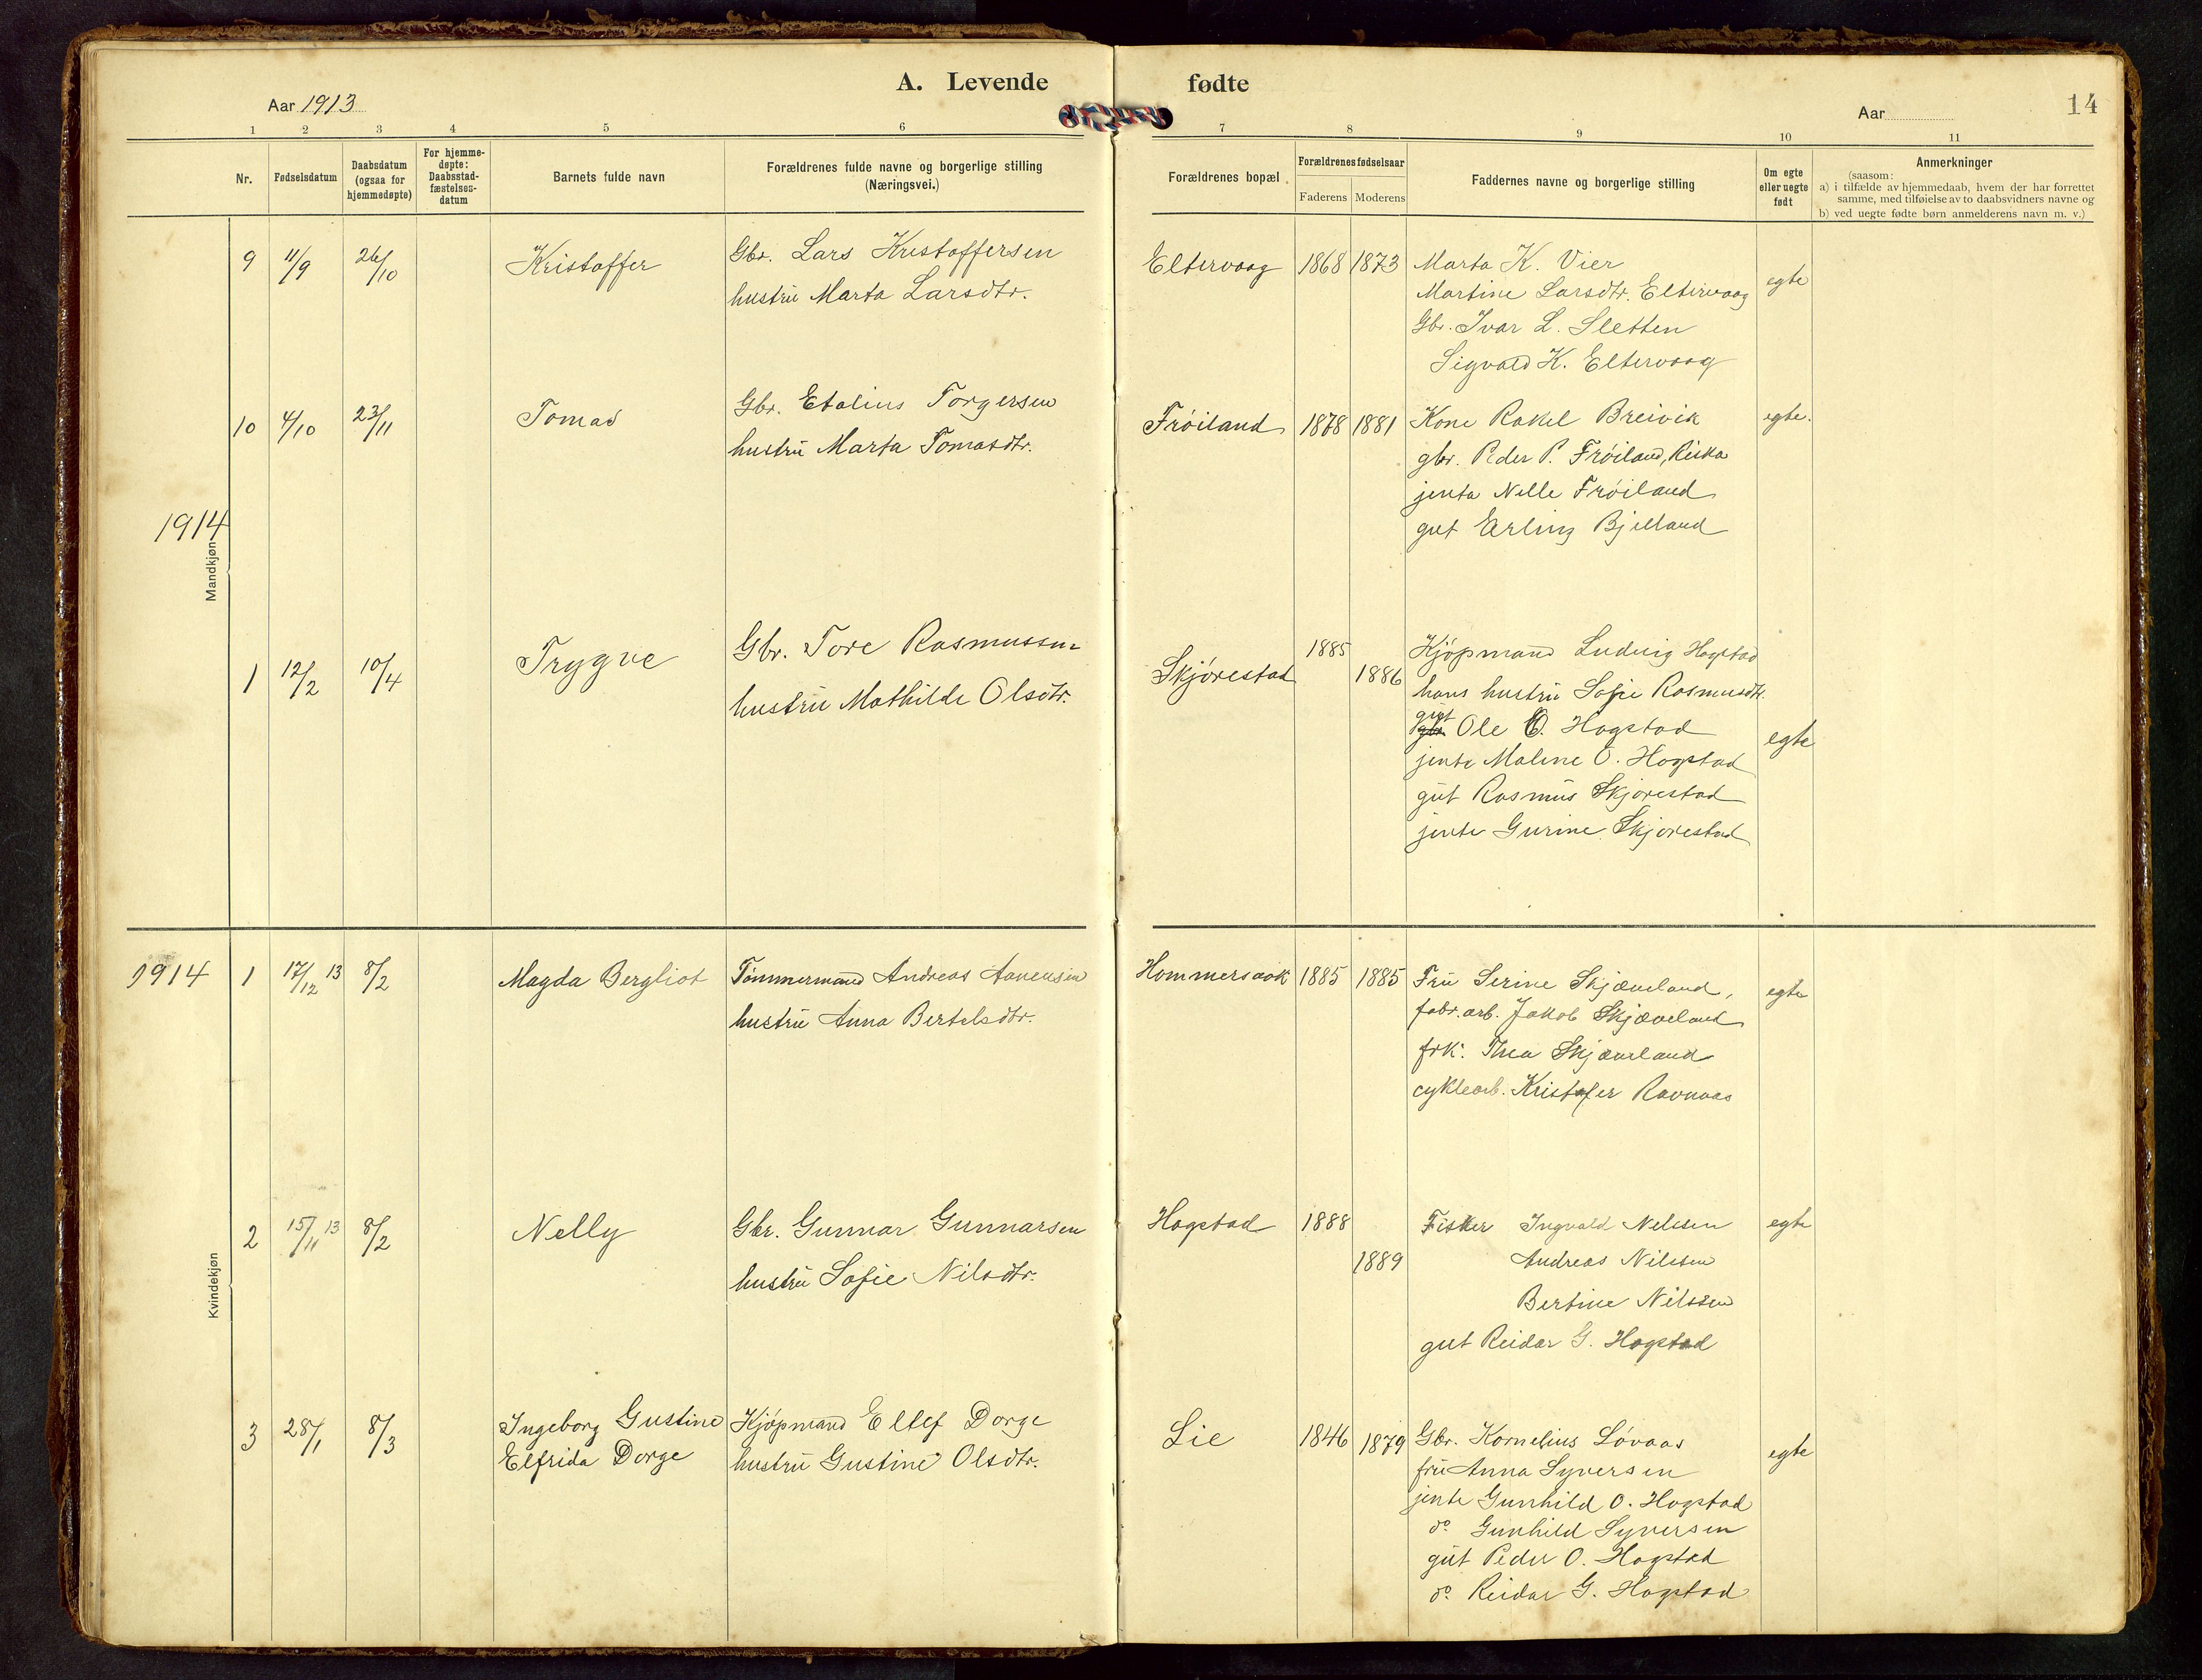 A. Levende fødte
Aar 1913
Aar
14
1 2 3 4 5 6 7 8 9 10 11
Nr.
Fødselsdatum
Daabsdatum
(ogsaa for
hjemmedøpte)
For hjemme-
døpte:
Daabsstad-
fæstelses-
datum
Barnets fulde navn
Forældrenes fulde navne og borgerlige stilling
(Næringsvei.)
Forældrenes bopæl
Forældrenes fødselsaar
Faderens Moderens
Faddernes navne og borgerlige stilling
Om egte
eller uegte
født
Anmerkninger
(saasom:
a) i tilfælde av hjemmedaab, hvem der har forrettet
samme, med tilføielse av to daabsvidners navne og
b) ved uegte fødte børn anmelderens navn m. v.)
Mandkjøn
9 11/9 26/10 Kristoffer
Gbr. Lars Kristoffersen
hustru Marta Larsdtr.
Eltervaag 1868 1873
Marta K. Vier
Martine Larsdtr. Eltervaag
Gbr. Ivar L. Sletten
Sigvald K. Eltervaag
egte
10 4/10 23/11 Tomas
Gbr. Etalius Torgersen
hustru Marta Tomasdtr.
Frøiland 1878 1881
Kone Rakel Breivik
gbr. Peder P. Frøiland, Riska
jenta Nelle Frøiland
gut Erling Bjelland
egte.
1914
1 12/2 10/4 Trygve
Gbr. Tore Rasmussen
hustru Mathilde Olsdtr.
Skjørestad 1885 1886
Kjøpmand Ludvig Hogstad
hans hustru Sofie Rasmusdtr.
gut
gbr. Ole O. Hogstad
jente Malene O. Hogstad
gut Rasmus Skjørestad
jente Gurine Skjørestad
egte
Kvindekjøn
1914
1 17/12 13 8/2 Magda Bergliot
Tømmermand Andreas Aanensen
hustru Anna Bertelsdtr.
Hommersaak 1885 1885
Fru Serine Skjæveland,
fabr.arb. Jakob Skjæveland
frk. Thea Skjæveland
cyklearb. Kristofer Ravnaas
egte
2 15/11 13 8/2 Nelly
Gbr. Gunnar Gunnarsen
hustru Sofie Nilsdtr.
Hogstad 1888 1889
Fisker Ingvald Nilssen
Andreas Nilssen
Bertine Nilssen
gut Reidar G. Hogstad
egte
3 28/1 8/3 Ingeborg Gustine
Elfrida Dorge
Kjøpmand Ellef Dorge
hustru Gustine Olsdtr.
Lie 1846 1879
Gbr. Kornelius Løvaas
fru Anna Syversen
jente Gunhild O. Hogstad
do Gunhild Syversen
gut Peder O. Hogstad
do Reidar G. Hogstad
egte